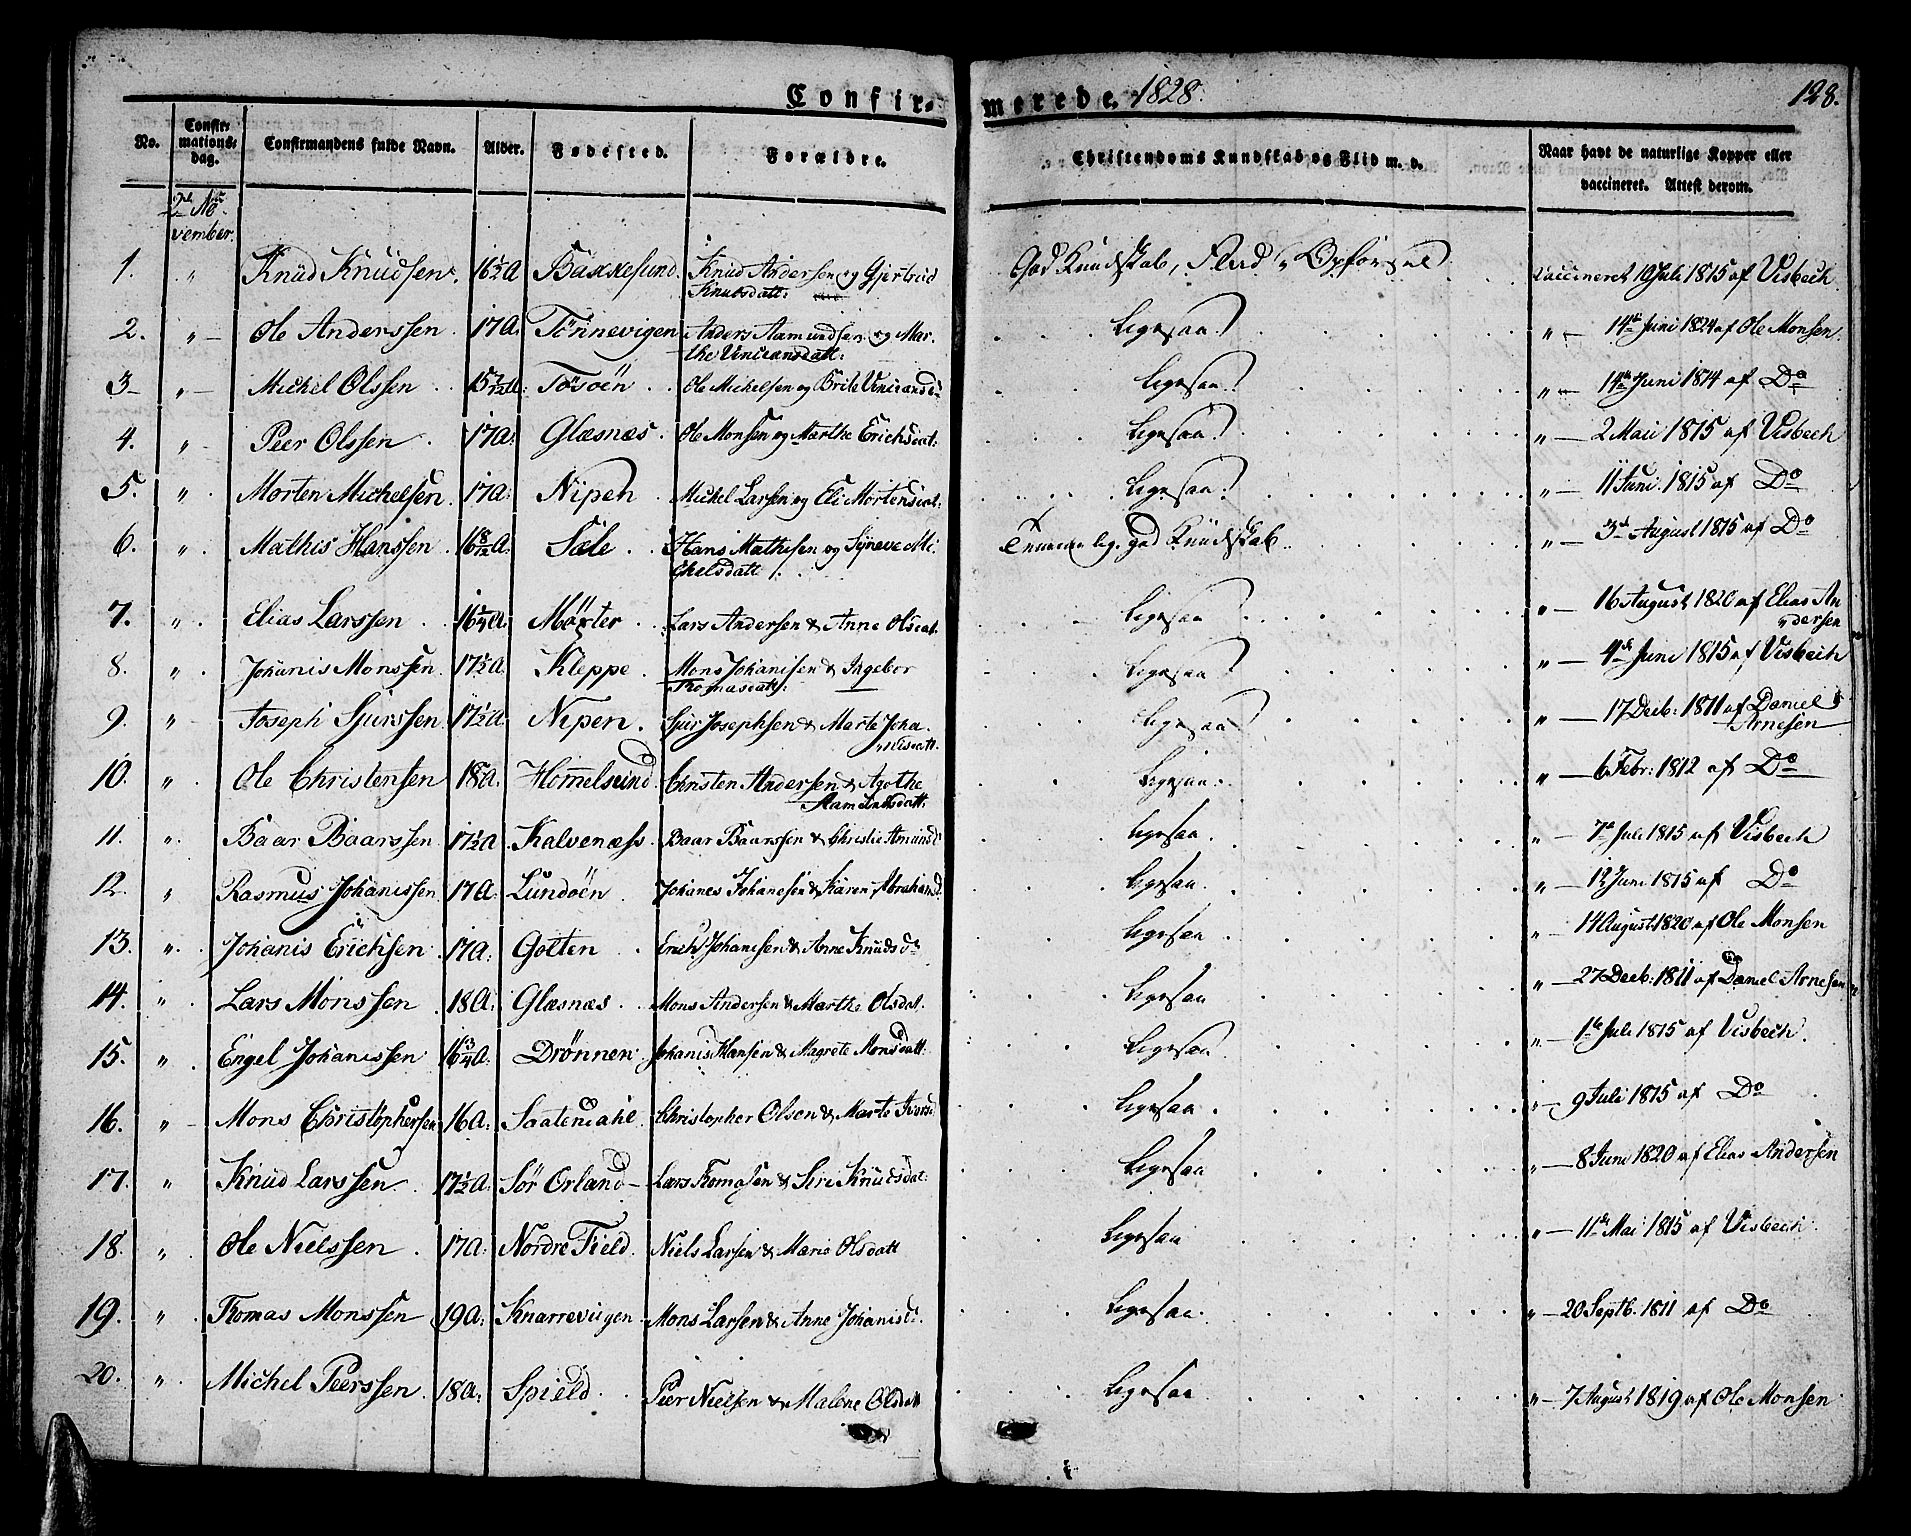 Confir- merede. 1828. 128.
No. Confir-mations-dag. Confirmandens fulde Navn. Alder. Fødested. Forældre. Christendoms Kundskab og Flid m. v. Naar havt de naturlige Kopper eller vaccineret. Attest derom.
2den November.
1. " Knud Knudsen. 16½A Bakkesund. Knud Andersen og Gjertrud Knudsdatt: God Kundskab, Flid & Opførsel vaccineret 19 Juli 1815 af Visbech
2. " Ole Anderssen. 17A: Tönnevigen Anders Aamundsen og Marthe Vincentsdatt: Ligesaa. " — 14de Juni 1824 af Ole Monsen.
3 " Michel Olssen 15 7/12A: Tösöen Ole Michelsen og Brite Ligesaa. " — 14de Juni 1814 af Do
4. " Peer Olssen 17A: Glæsnæs. Ole Monsen og Marthe Erichsdat: Ligesaa. " — 2 Mai 1815 af Visbech
5. " Morten Michelsen. 17A: Nipen Michel Larsen og Eli Mortensdat: Ligesaa. " — 11 Juni 1815 af Do
6. " Mathis Hanssen 16 8/12A: Sæle Hans Mathisen og Synneve Michelsdatt. Temmelig god Kundskab. " — 3de August 1815 af Do
7. " Elias Larssen 16¼A: Möxter Lars Andersen & Anne Olsdat: Ligesaa " — 16 August 1820 af Elias Andersen
8. " Johanis Monssen. 17½A. Kleppe Mons Johanisen & Ingebor Thomasdatt: Ligesaa " — 4de Juni 1815 af Visbech
9. " Joseph Sjurssen. 17½A. Nipen. Sjur Josephsen & Marte Johannisdatt. Ligesaa " — 17 Decb: 1811 af Daniel Arnesen
10. " Ole Christensen 18A. Hommelsund Christen Andersen & Agothe Aamundsdatt: Ligesaa. " — 6 Febr: 1812 af Do
11. " Baar Baarssen 17½A. Kalvenæss Baar Baarssen & Christie Amunsd: Ligesaa. " — 7de Juli 1815 af Visbech
12. " Rasmus Johanissen 17A. Lundöen Johanes Johanesen & Karen Abrahamd. Ligesaa. " — 12 Juni 1815 af Do
13. " Johanis Erichsen. 17A. Golten Erich Johanesen & Anne Knudsdr Ligesaa " — 14 August 1820 af Ole Monsen
14. " Lars Monssen 18A. Glæsnæs Mons Andersen & Marthe Olsdat. Ligesaa " — 27 Decb. 1811 af Daniel Arnesen
15. " Engel Johanissen 16¾A. Drönnen Johanis Hansen & Magrete Monsdatt: Ligesaa " — 1de Juli 1815 af Visbech.
16. " Mons Christophersen 16A: Christopher Olsen & Marte Iversd Ligesaa. " — 9 Juli 1815 af Do
17. " Knud Larssen 17½A. Sör Orland Lars Tomasen & Siri Knudsdat: Ligesaa " — 8 Juni 1820 af Elias Andersen
18. " Ole Nielssen 17A. Nordre Field. Niels Larsen & Marie Olsdatt Ligesaa " — 11de Mai 1815 af Visbech
19. " Thomas Monssen 19A. Knarrevigen Mons Larsen & Anne Johanisd: Ligesaa. " — 20 Septb. 1811 af Do
20. " Michel Peerssen 18A. Spield Peer Nielsen & Malene Olsdatt Ligesaa " — 7 August 1819 af Ole Monsen